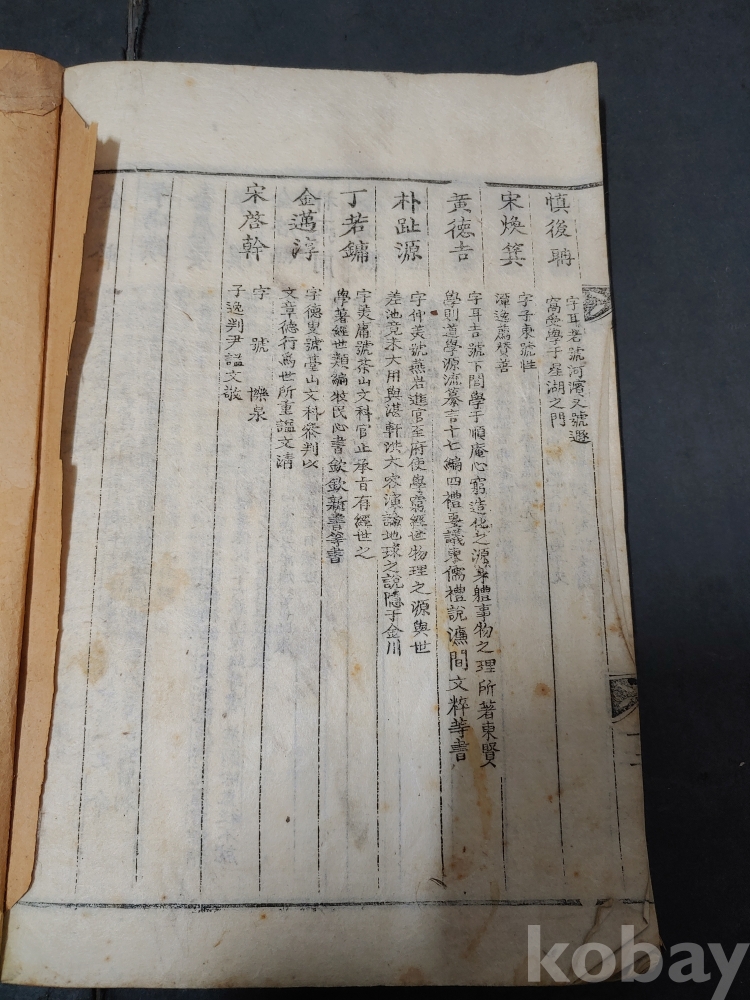 慎後聃
字耳老號河濱又號遯
窩受學于星湖之門
宋煥箕
字子東號性
潭逸薦贊善
黃德吉
字耳吉號下閭學于順庵心窮造化之源身體事物之理所著東賢
學則道學源流纂言十七編四禮要議東儒禮說濂間文粹等書
朴趾源
字仲美號燕岩進官至府使學窮經世物理之源與世
差池竟未大用與湛軒洪大容演論地球之說隱于金川
丁若鏞
字美庸號茶山文科官止承旨有經世之
學著經世類編牧民心書欽欽新書等書
金邁淳
字德叟號臺山文科參判以
文章德行爲世所重諡文清
宋啓幹
字 號 櫟泉
子逸判尹諡文敬
kobay